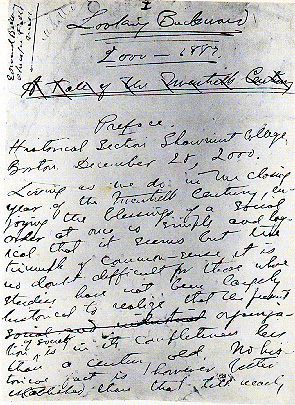 I
Edward Bellamy
Chicopee Falls
Mass
Looking Backward
2000 – 1887
A Tale of the Twentieth Century
Preface.
Historical Section Shawmut College,
Boston, December 28, 2000.
Living as we do in the closing
year of the twentieth century, en-
joying the blessings of a social
order at once so simple and log-
ical that it seems but the
triumph of common sense, it is
no doubt difficult for those whose
studies have not been largely
historical to realize that the present
social and industrial organiza-
tion of society is in its completeness less
than a century old. No his-
torical fact is, however, better
established than that till nearly